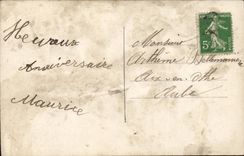 Heureux
Anniversaire
Maurice
Monsieur
Arthème
Aix-en-Othe
Aube
5